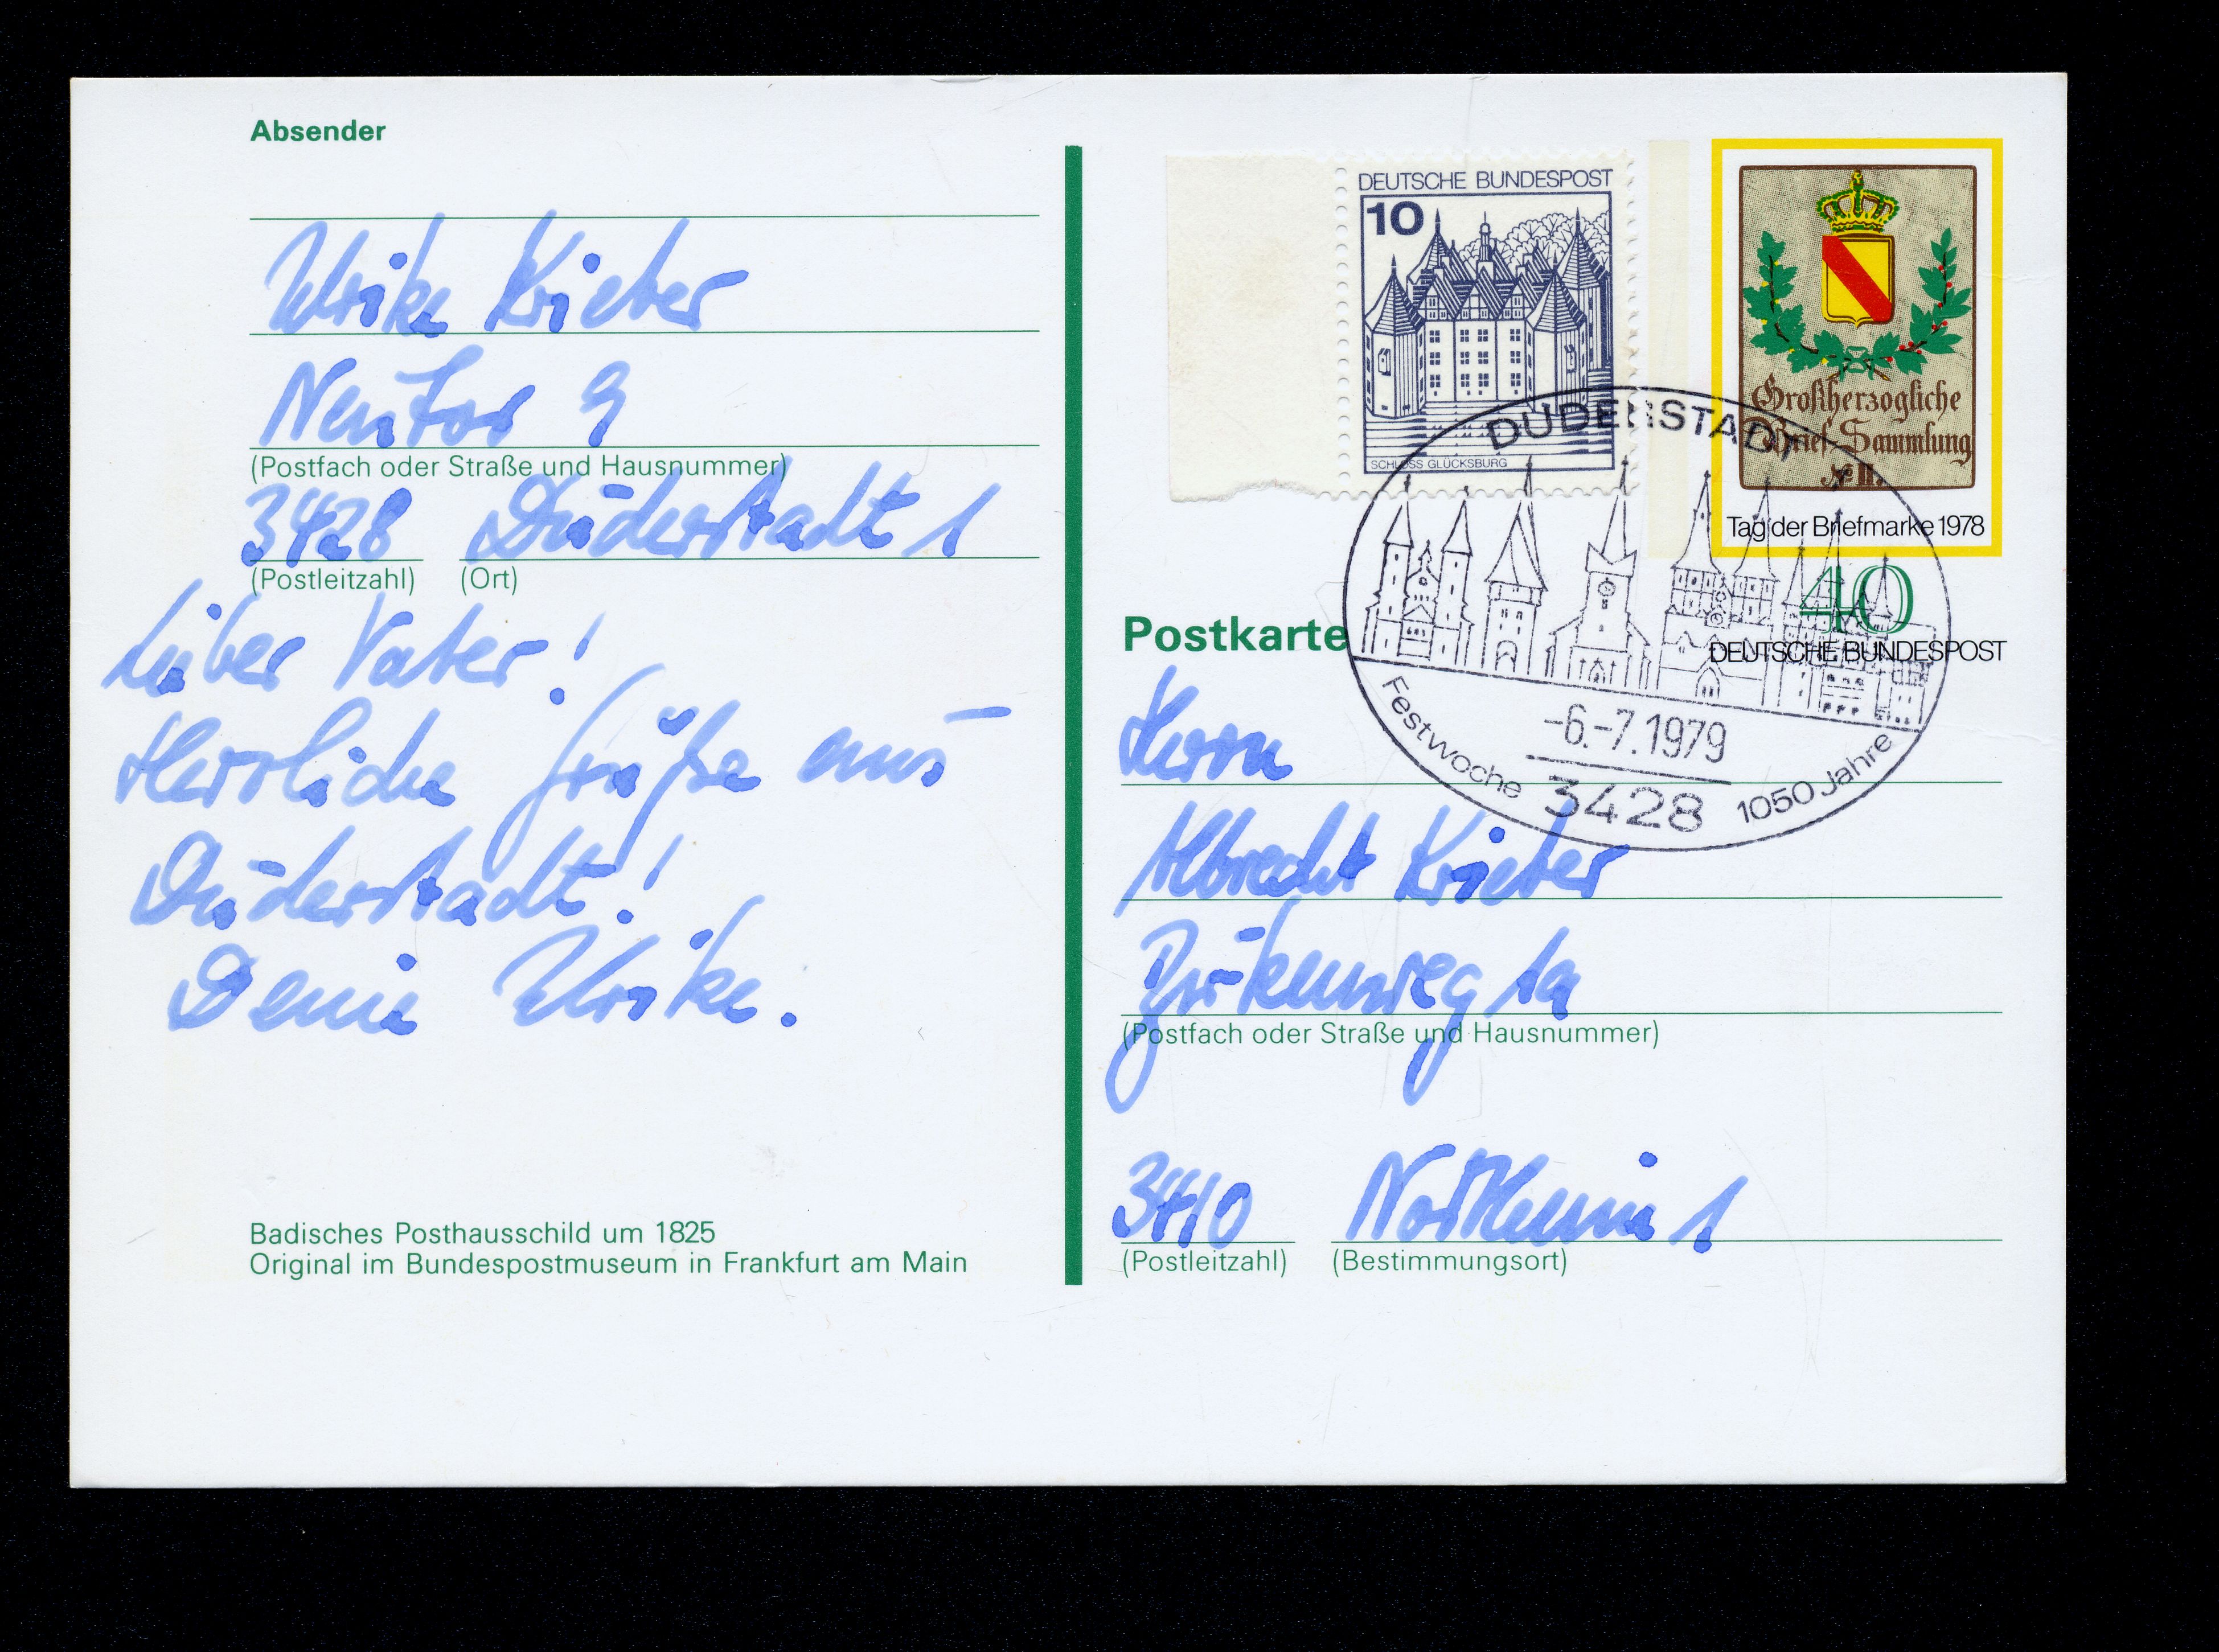 Absender
Ulrike Krieter
Neutor 9
(Postfach oder Straße und Hausnummer)
3428 Duderstadt 1
(Postleitzahl) (Ort)
Lieber Vater!
Herzliche Grüße aus
Duderstadt!
Deine Ulrike.
Badisches Posthausschild um 1825
Original im Bundespostmuseum in Frankfurt am Main
DEUTSCHE BUNDESPOST
10
SCHLOSS GLÜCKSBURG
Großherzogliche
Brief-Sammlung
No II.
Tag der Briefmarke 1978
40
DEUTSCHE BUNDESPOST
DUDERSTADT
-6.-7.1979
Festwoche 3428 1050 Jahre
Postkarte
Herrn
Albrecht Krieter
1a
(Postfach oder Straße und Hausnummer)
3410 Northeim 1
(Postleitzahl) (Bestimmungsort)